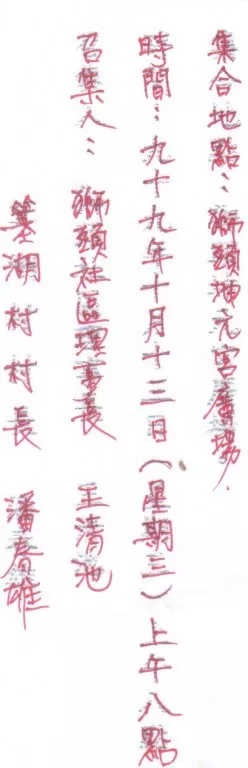 集合地點：獅頭坤元宮廣場.
時間：九十九年十月十三日(星期三)上午八點
召集人：獅頭社區理事長 王清池
箕湖村村長 潘春雄